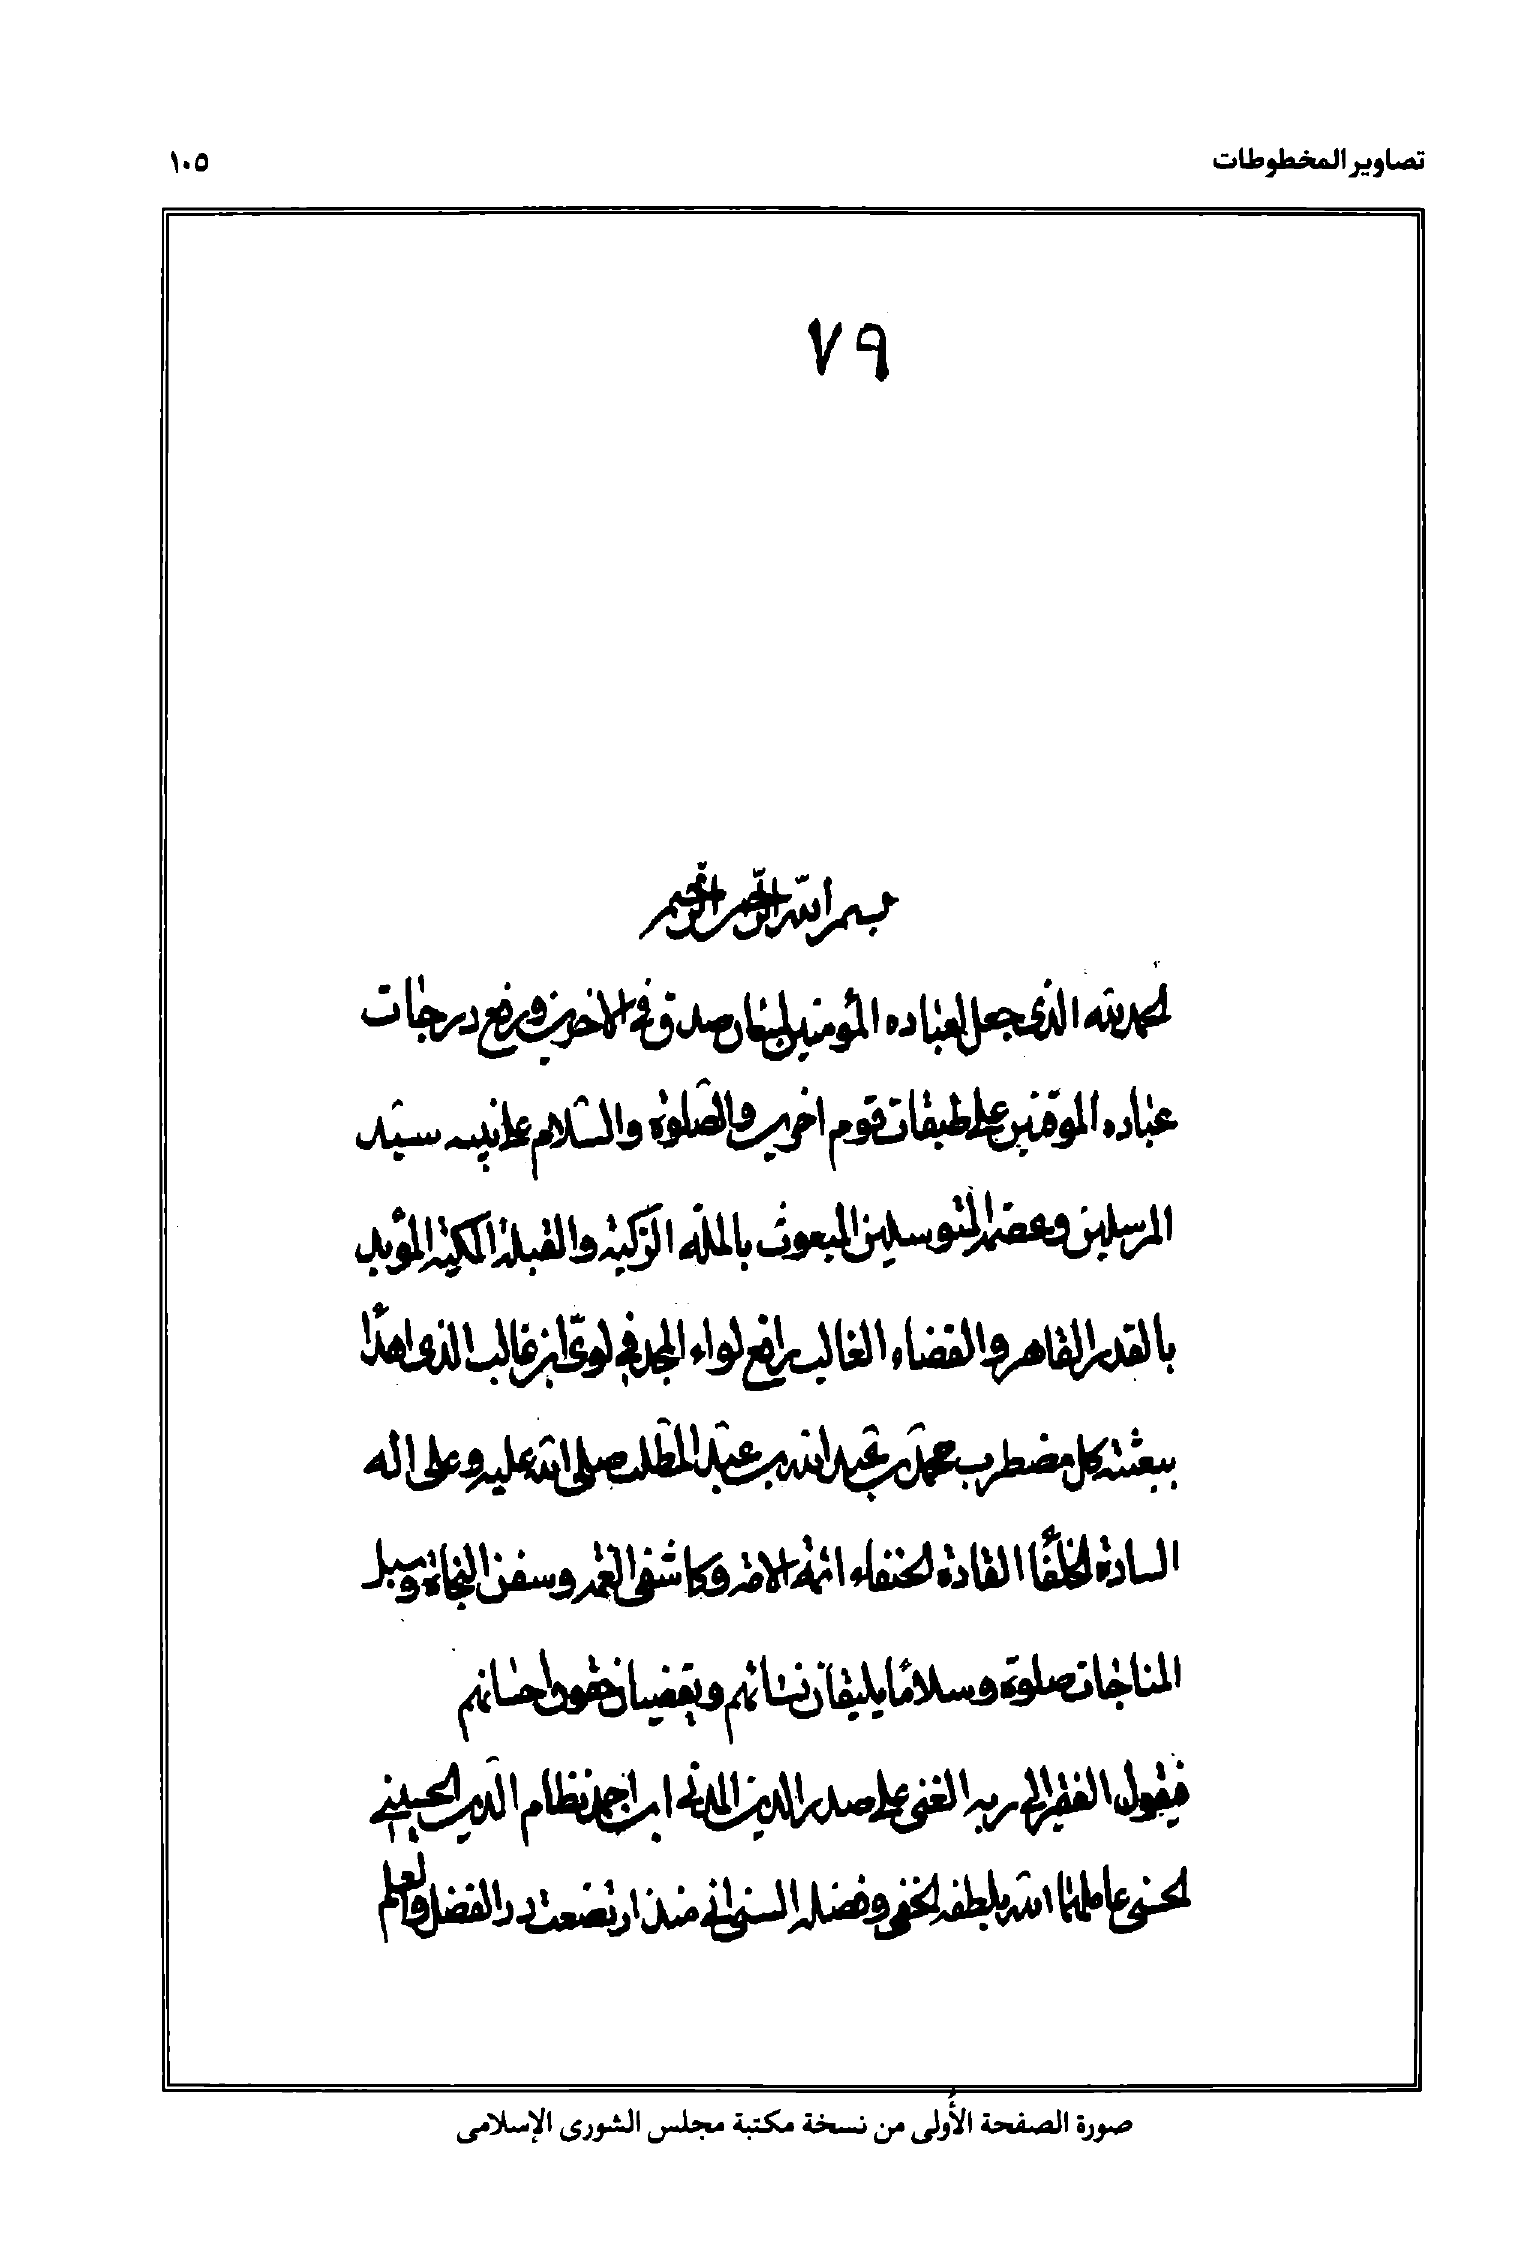 تصاوير المخطوطات
١٠٥
٧٩
بسم الله الرحمن الرحيم
الحمد لله الذى جعل لعباده المؤمنين لسان صدق فى الاخرين ورفع درجات
عباده الموقنين على طبقات قوم اخرين والصلوة والسلام على نبيه سيد
المرسلين وعصمة المتوسلين المبعوث بالملة الزكية والقبلة المكية المؤيد
بالقدر القاهر والقضاء الغالب رافع لواء المجد فى لوى ابن غالب الذى اهدا
ببعثته كل مضطرب محمد بن عبد الله بن عبد المطلب صلى الله عليه وعلى اله
السادة الخلفا القادة الحنفاء ائمة الامة وكاشفى الغمة وسفن النجاة وسبل
المناجات صلوة وسلاما يليقان بشائهم ويقضيان حقوق احسانهم
فيقول الفقير الى ربه الغنى على صدر الدين المدنى ابن احمد نظام الدين الحسينى
الحسنى عاملهما الله بلطفه الخفى وفضله السنى انى منذ ارتضعت در الفضل والعلم
صورة الصفحة الأولى من نسخة مكتبة مجلس الشورى الإسلامى